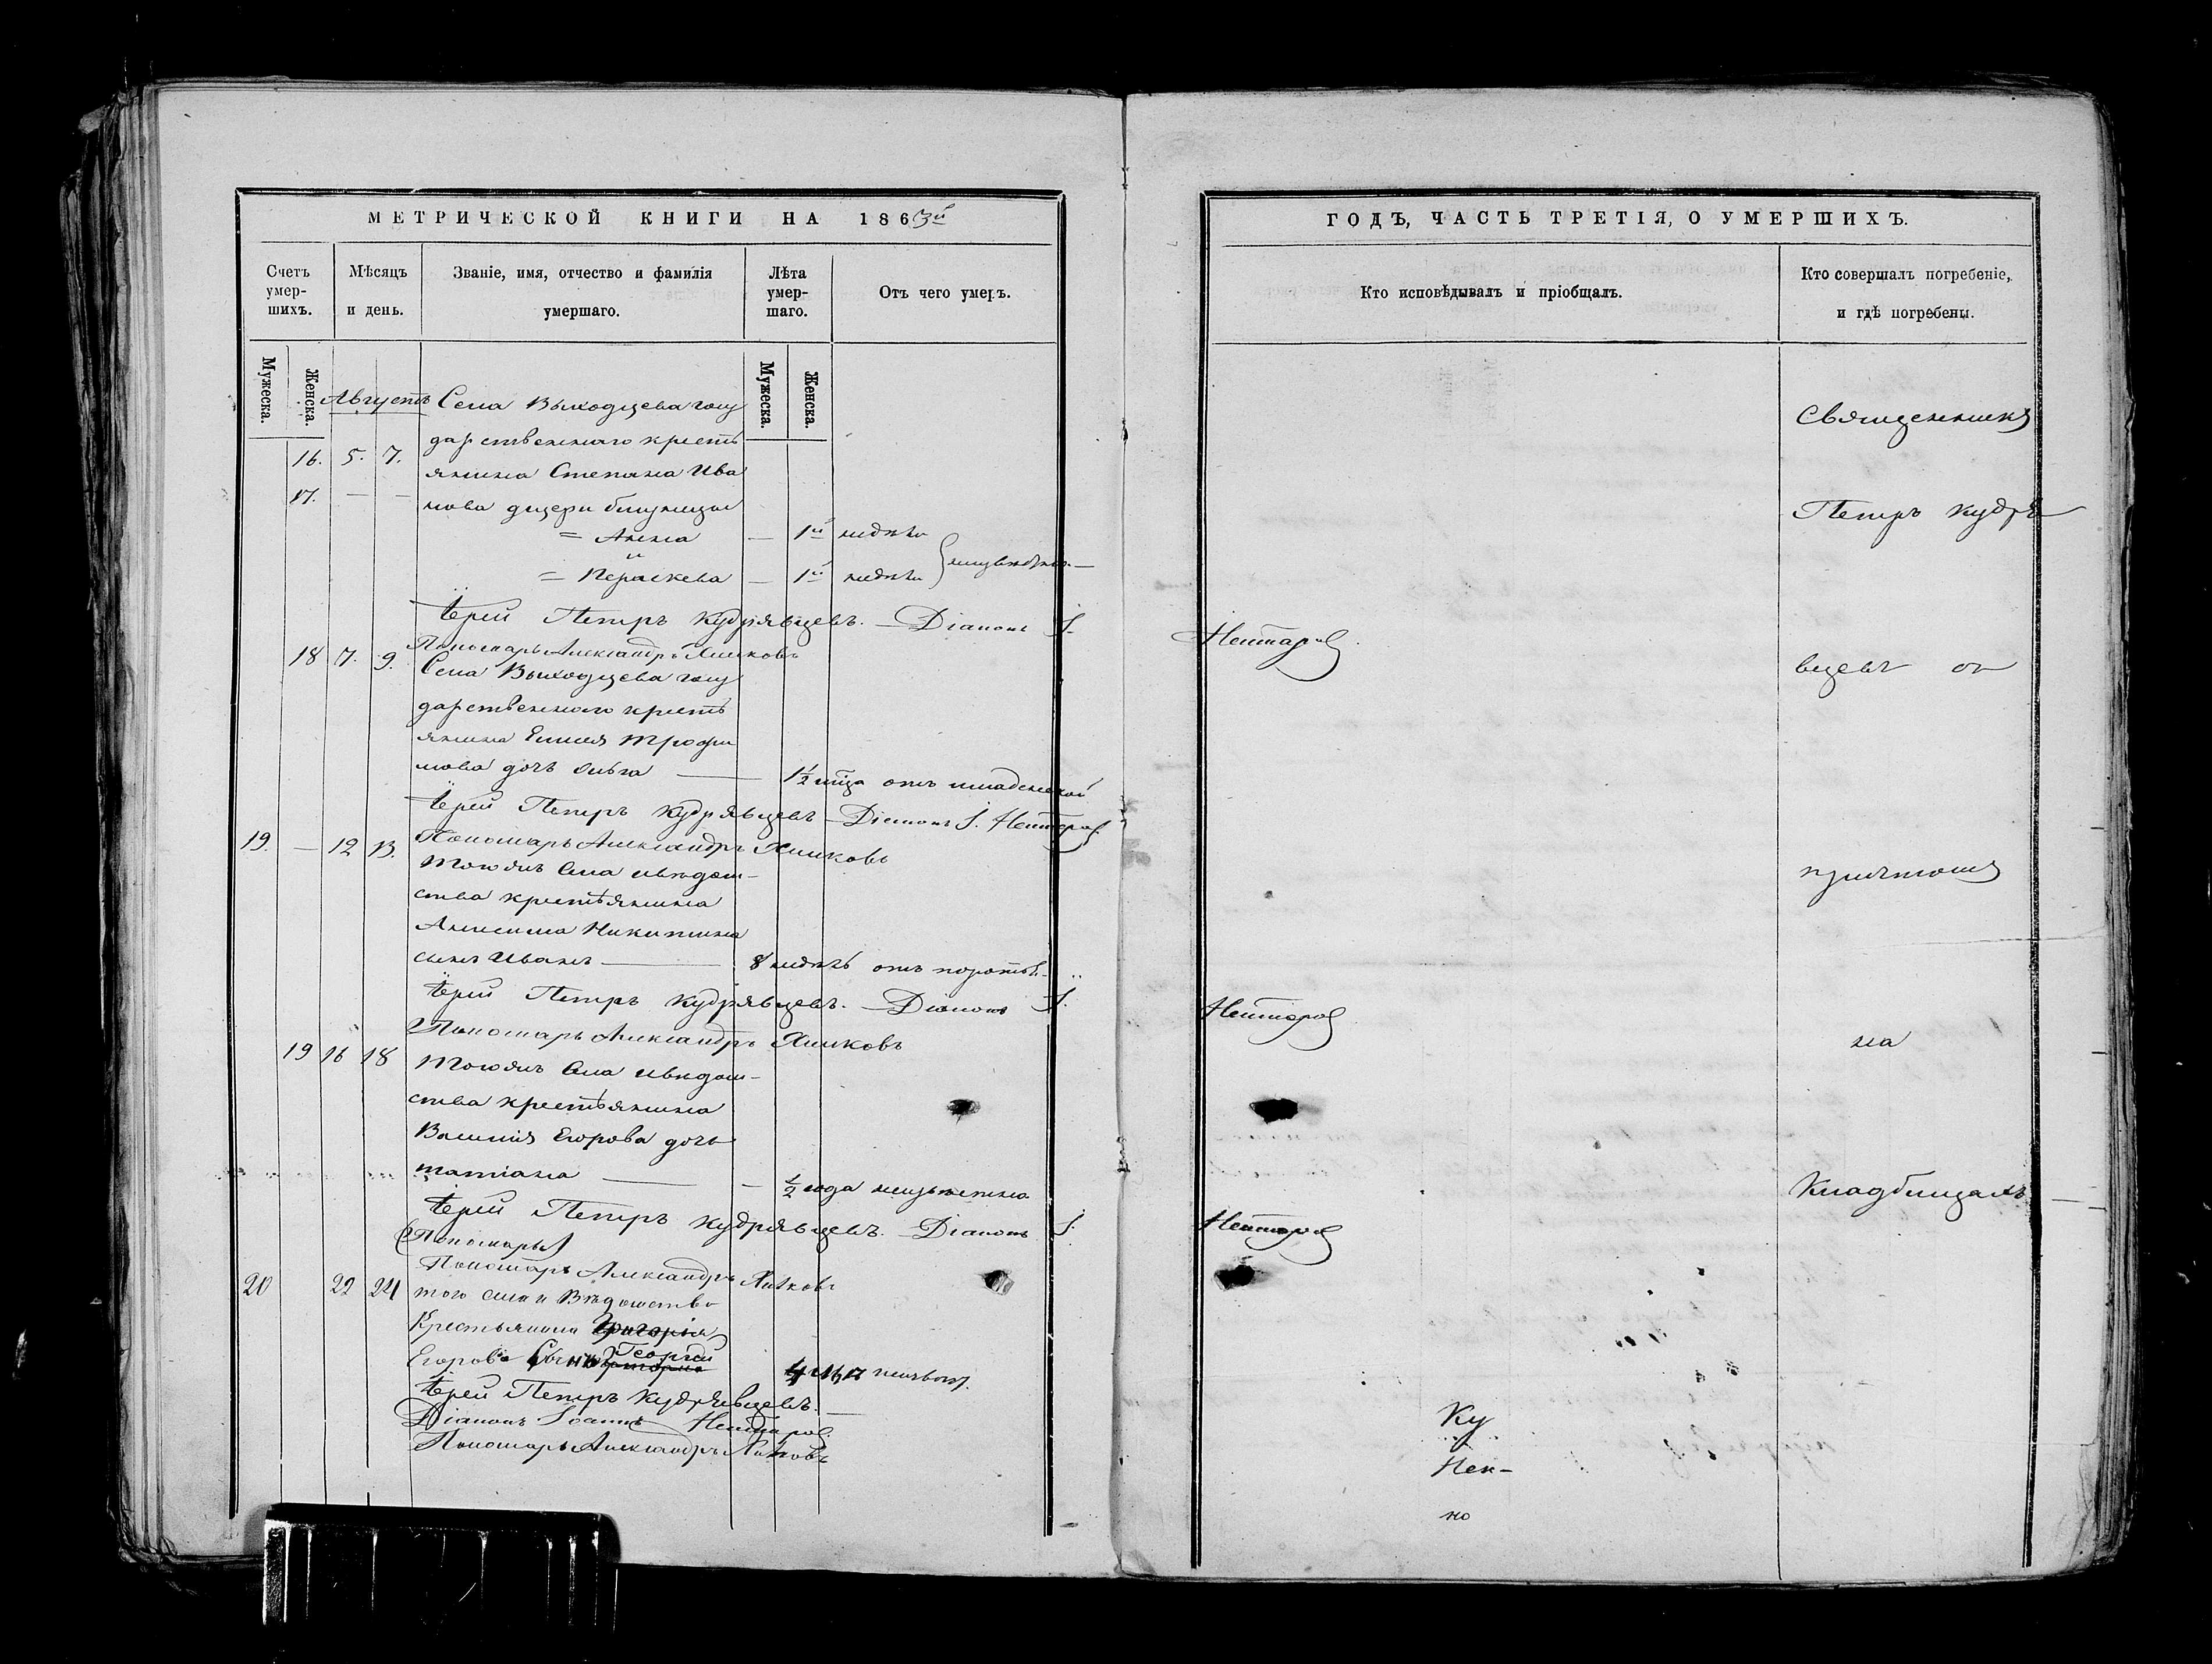 МЕТРИЧЕСКОЙ КНИГИ НА 1863й
Счетъ умер-шихъ.
Мѣсяцъ и день.
Званіе, имя, отчество и фамилія умершаго.
Лѣта умер-шаго.
Отъ чего умеръ.
Мужеска.
Женска.
Мужеска.
Женска.
Августъ
Села Выходцева госу
дарственнаго кресть
16. 5. 7.
янина Степана Ива
17. — —
нова дщери близницы
= Анна — 1й недѣли
и
= Параскева — 1й недѣли
Іерей Петръ Кудрявцевъ. — Діаконъ І.
Пономарь Александръ
18 7. 9.
Села Выходцева госу
дарственнаго кресть
янина Трофи
мова дочь Ольга — 1½ мца отъ младенской
Іерей Петръ Кудрявцевъ — Діаконъ І. Нектаровъ
19. — 12 13.
Пономарь Александръ
Тогожъ села и вѣдом-
ства крестьянина
Анисима Никитина
сынъ Иванъ — 8 недѣль отъ
Іерей Петръ Кудрявцевъ. — Діаконъ І.
Пономарь Александръ
19 16 18
Тогожъ села и вѣдом-
ства крестьянина
Василія Егорова дочь
татіана — — ½ года неизвѣстно
Іерей Петръ Кудрявцевъ. — Діаконъ І.
(Пономарь)
Пономарь Александръ
20 22 24
того села и Вѣдомства
Крестьянина Григорія
Егорова Сынъ Георгій
Іерей Петръ Кудрявцевъ. —
Діаконъ Іоаннъ Нектаровъ
Пономарь Александръ
ГОДЪ, ЧАСТЬ ТРЕТІЯ, О УМЕРШИХЪ.
Кто исповѣдывалъ и пріобщалъ.
Кто совершалъ погребеніе, и гдѣ погребены.
Священникъ
Петръ Кудря
Нектаровъ
вцевъ съ
причтомъ
Нектаровъ
на
Кладбищахъ
Нектаровъ
Ку
Нек-
но